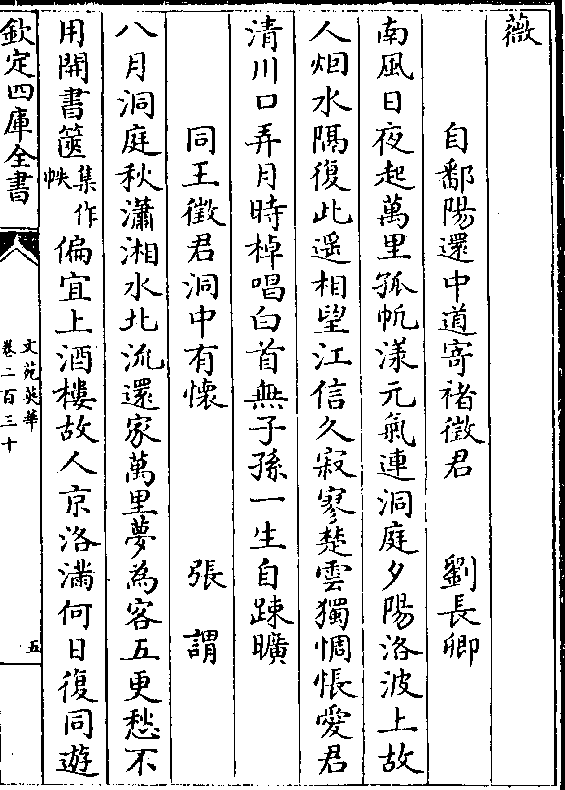 薇
自鄱陽還中道寄褚徵君　劉長卿
南風日夜起萬里孤帆漾元氣連洞庭夕陽洛波上故
人烟水隅復此遥相望江信久寂寥楚雲獨惆悵愛君
清川口弄月時棹唱白首無子孫一生自踈曠
同王徵君洞中有懷　張謂
八月洞庭秋瀟湘水北流還家萬里夢為客五更愁不
用開書篋集作帙偏宜上酒樓故人京洛滿何日復同遊
欽定四庫全書
文苑英華
卷二百三十
五